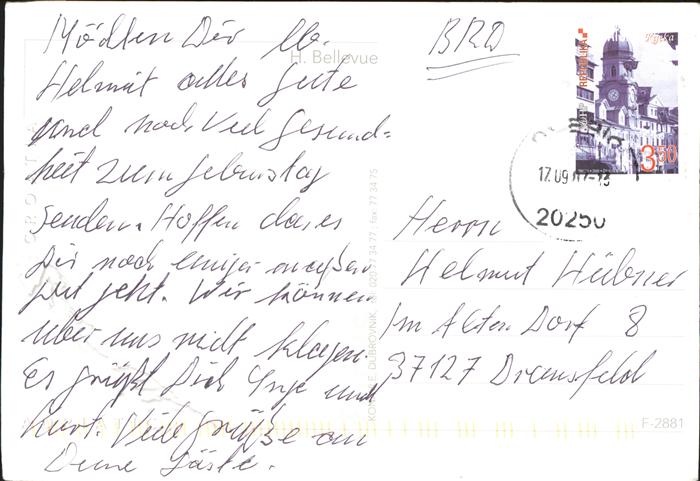 Möchten Dir lb.
Helmut alles Gute
und noch viel Gesund-
heit zum Geburtstag
senden. Hoffen das es
Dir noch einiger maßen
gut geht. Wir können
über uns nicht klagen.
Es grüßt Dich Inge und
Kurt. Viele Grüße an
Deine Gäste.
H. Bellevue
BRD
REPUBLIKA
Rijeka
3.50
17.09
20250
Herrn
Helmut Hübner
Im Alten Dorf 8
37127 Dransfeld
F-2881